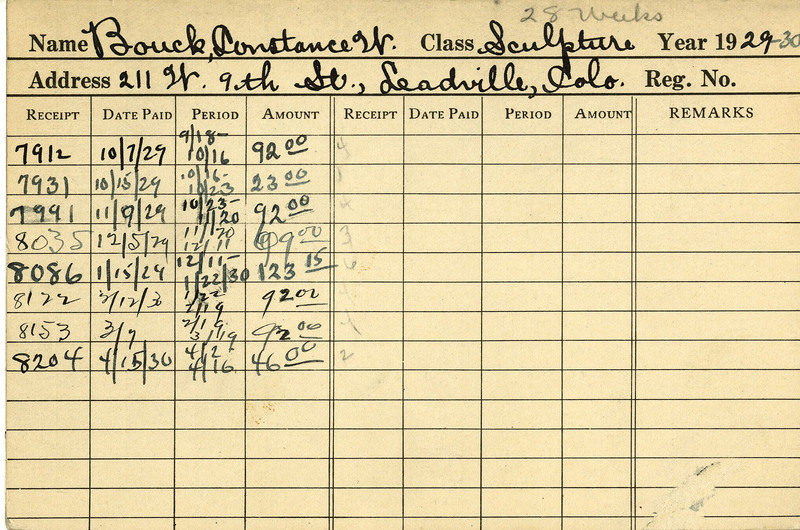 28 Weeks
Name Bouck, Constance W. Class Sculpture Year 1929-30
Address 211 W. 9th St., Leadville, Colo. Reg. No.
RECEIPT DATE PAID PERIOD AMOUNT RECEIPT DATE PAID PERIOD AMOUNT REMARKS
7912 10/7/29 9/18- 10/16 92 00 4
7931 10/15/29 10/16- 10/23 23 00 1
7991 11/9/29 10/23- 11/20 92 00 4
8035 12/5/29 11/20 12/11 69 00 3
8086 1/15/29 12/11- 1/22/30 123 15 6
8122 2/12/30 1/22 2/19 92 00 4
8153 3/7 2/19 3/19 92 00 4
8204 4/15/30 4/2- 4/16 46 00 2